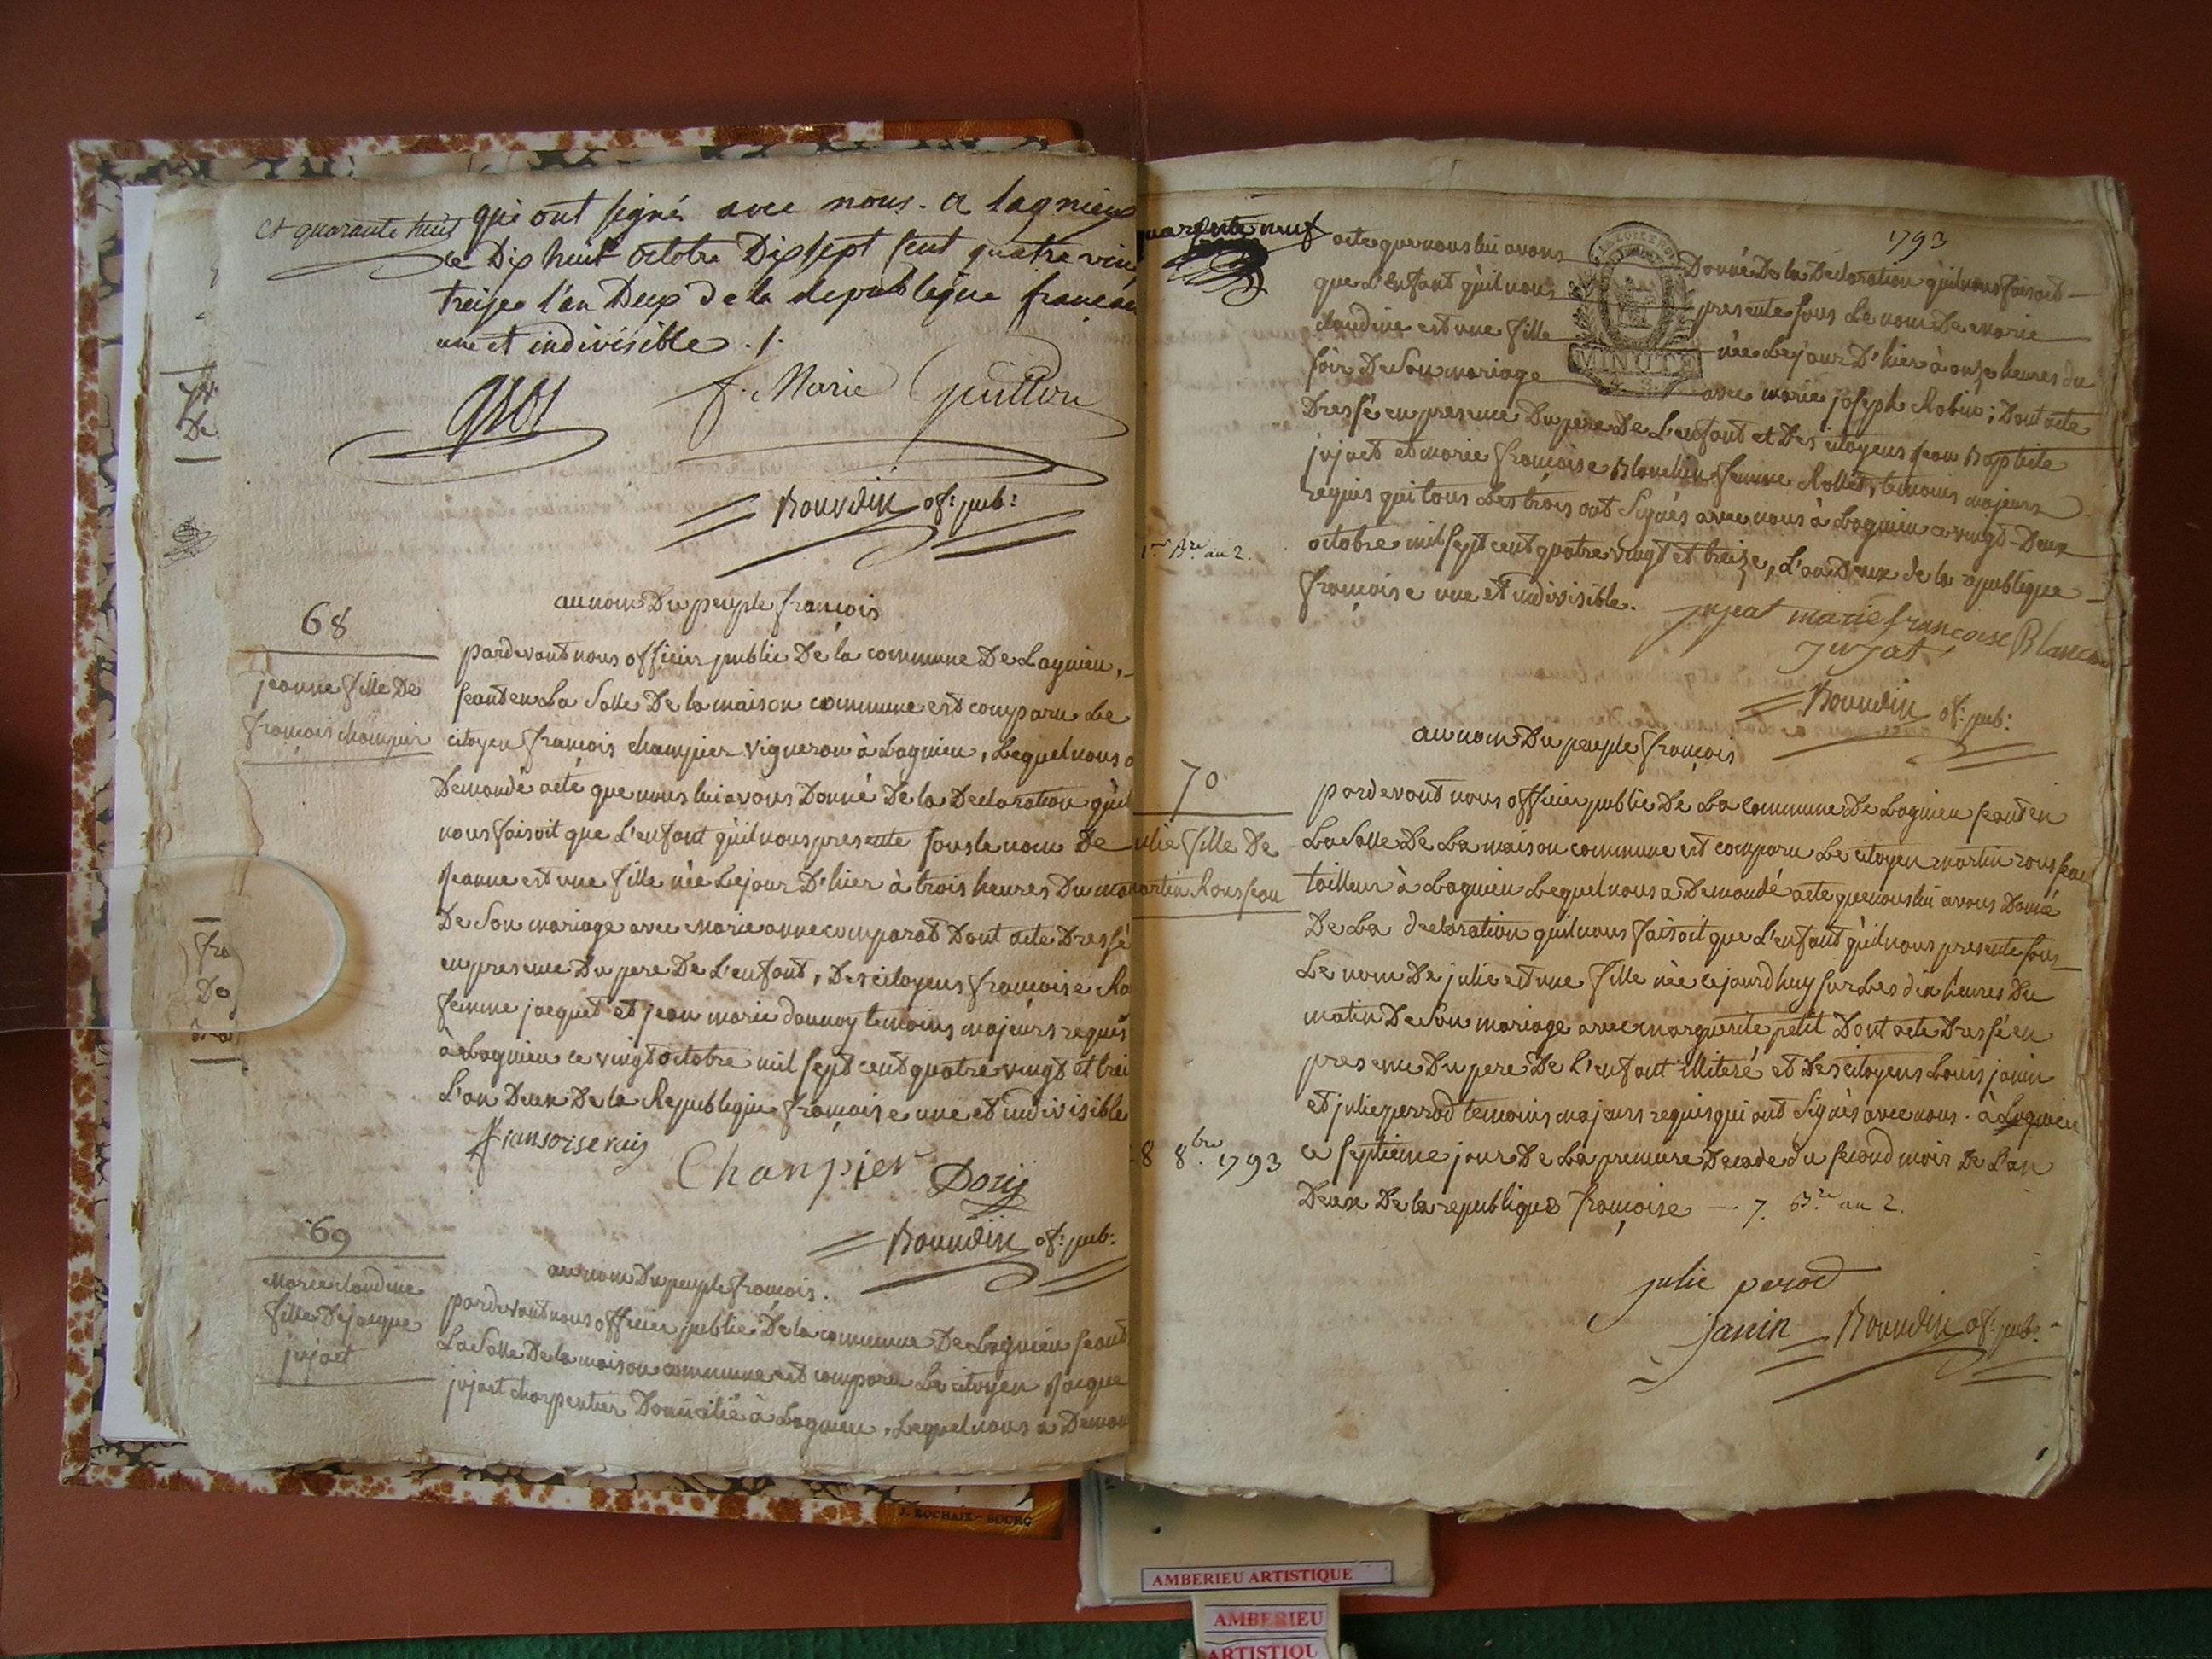 et quarante huit
qui ont signé avec nous. a lagnieu
ce Dix huit octobre Dix sept cent quatre vin
treize l'an Deux de la republique francai
une et indivisible ./.
gros
f. Marie Guitton
Bourdin of: pub:
68
jeanne fille De
françois champier
au nom Du peuple françois
pardevant nous officier public De la commune De Lagnieu,
seant en La Salle De la maison commune est comparu Le
citoyen françois champier vigneron à Lagnieu, Lequel nous a
Demandé acte que nous lui avons Donné De la Declaration qu'il
nous faisoit que L'enfant qu'il nous presente sous le nom De
Jeanne est une fille née Le jour D'hier à trois heures Du ma
De Son mariage avec Marie anne comparat Dont acte Dressé
en presence Du pere De L'enfant, Des citoyens françoise
femme jacquet et jean marie dounoy temoins majeurs requis
à Lagnieu ce vingt octobre mil sept cent quatre vingt et trei
L'an Deux De la Republique françoise une et indivisible
Chanpier
Bourdin of: pub:
69
Marie claudine
fille De jacque
jujact
au nom Du peuple françois.
pardevant nous officier public De la commune De Lagnieu seant
La Salle De la maison commune est comparu Le citoyen Jacque
jujact charpentier Domicilié à Lagnieu, Lequel nous a Deman
quarante neuf
1793
acte que nous lui avons Donné De la Declaration qu'il nous faisoit
que L'enfant qu'il nous presente sous Le nom De Marie
claudine est une fille née Le jour D'hier à onze heures du
soir De Son mariage avec marie joseph Robin; Dont acte
Dressé en presence Du pere De L'enfant et Des citoyens jean Baptiste
jujact et marie françoise Blanchin femme Rollet, temoins majeurs
requis qui tous Les trois ont Signés avec nous à Lagnieu ce vingt-Deux
octobre mil sept cent quatre vingt et treize, L'an Deux de la republique
françoise une et indivisible.
1er Bre an 2.
MINUTE
jujat marie francoise Blanc
jujat
Bourdin of: pub:
au nom Du peuple françois
70
julie fille De
martin Rousseau
pardevant nous officier public De La commune De Lagnieu seant en
La Salle De La maison commune est comparu Le citoyen martin rousseau
tailleur à Lagnieu Lequel nous a Demandé acte que nous lui avons Donné
De La declaration qu'il nous faisoit que L'enfant qu'il nous presente sous
Le nom De julie est une fille née cejourd'huy sur Les dix heures Du
matin De Son mariage avec marguerite petit Dont acte Dressé en
presence Du pere De L'enfant illiteré et Des citoyens Louis janin
et julie perrod temoins majeurs requis qui ont Signés avec nous. à Lagnieu
ce septieme jour De La premiere Decade du second mois De L'an
Deux De la republique françoise — 7. Bre an 2.
8 8bre 1793
julie perod
janin
Bourdin of: pub:
fra
De
J. ROCHAIX - BOURG
AMBERIEU ARTISTIQUE
AMBERIEU
ARTISTIQU